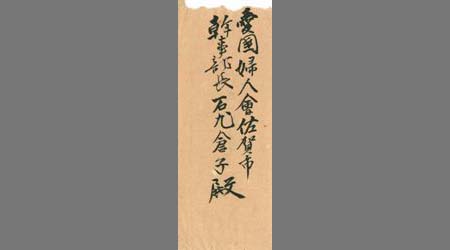 愛国婦人會佐賀市
幹事部長石丸倉子殿